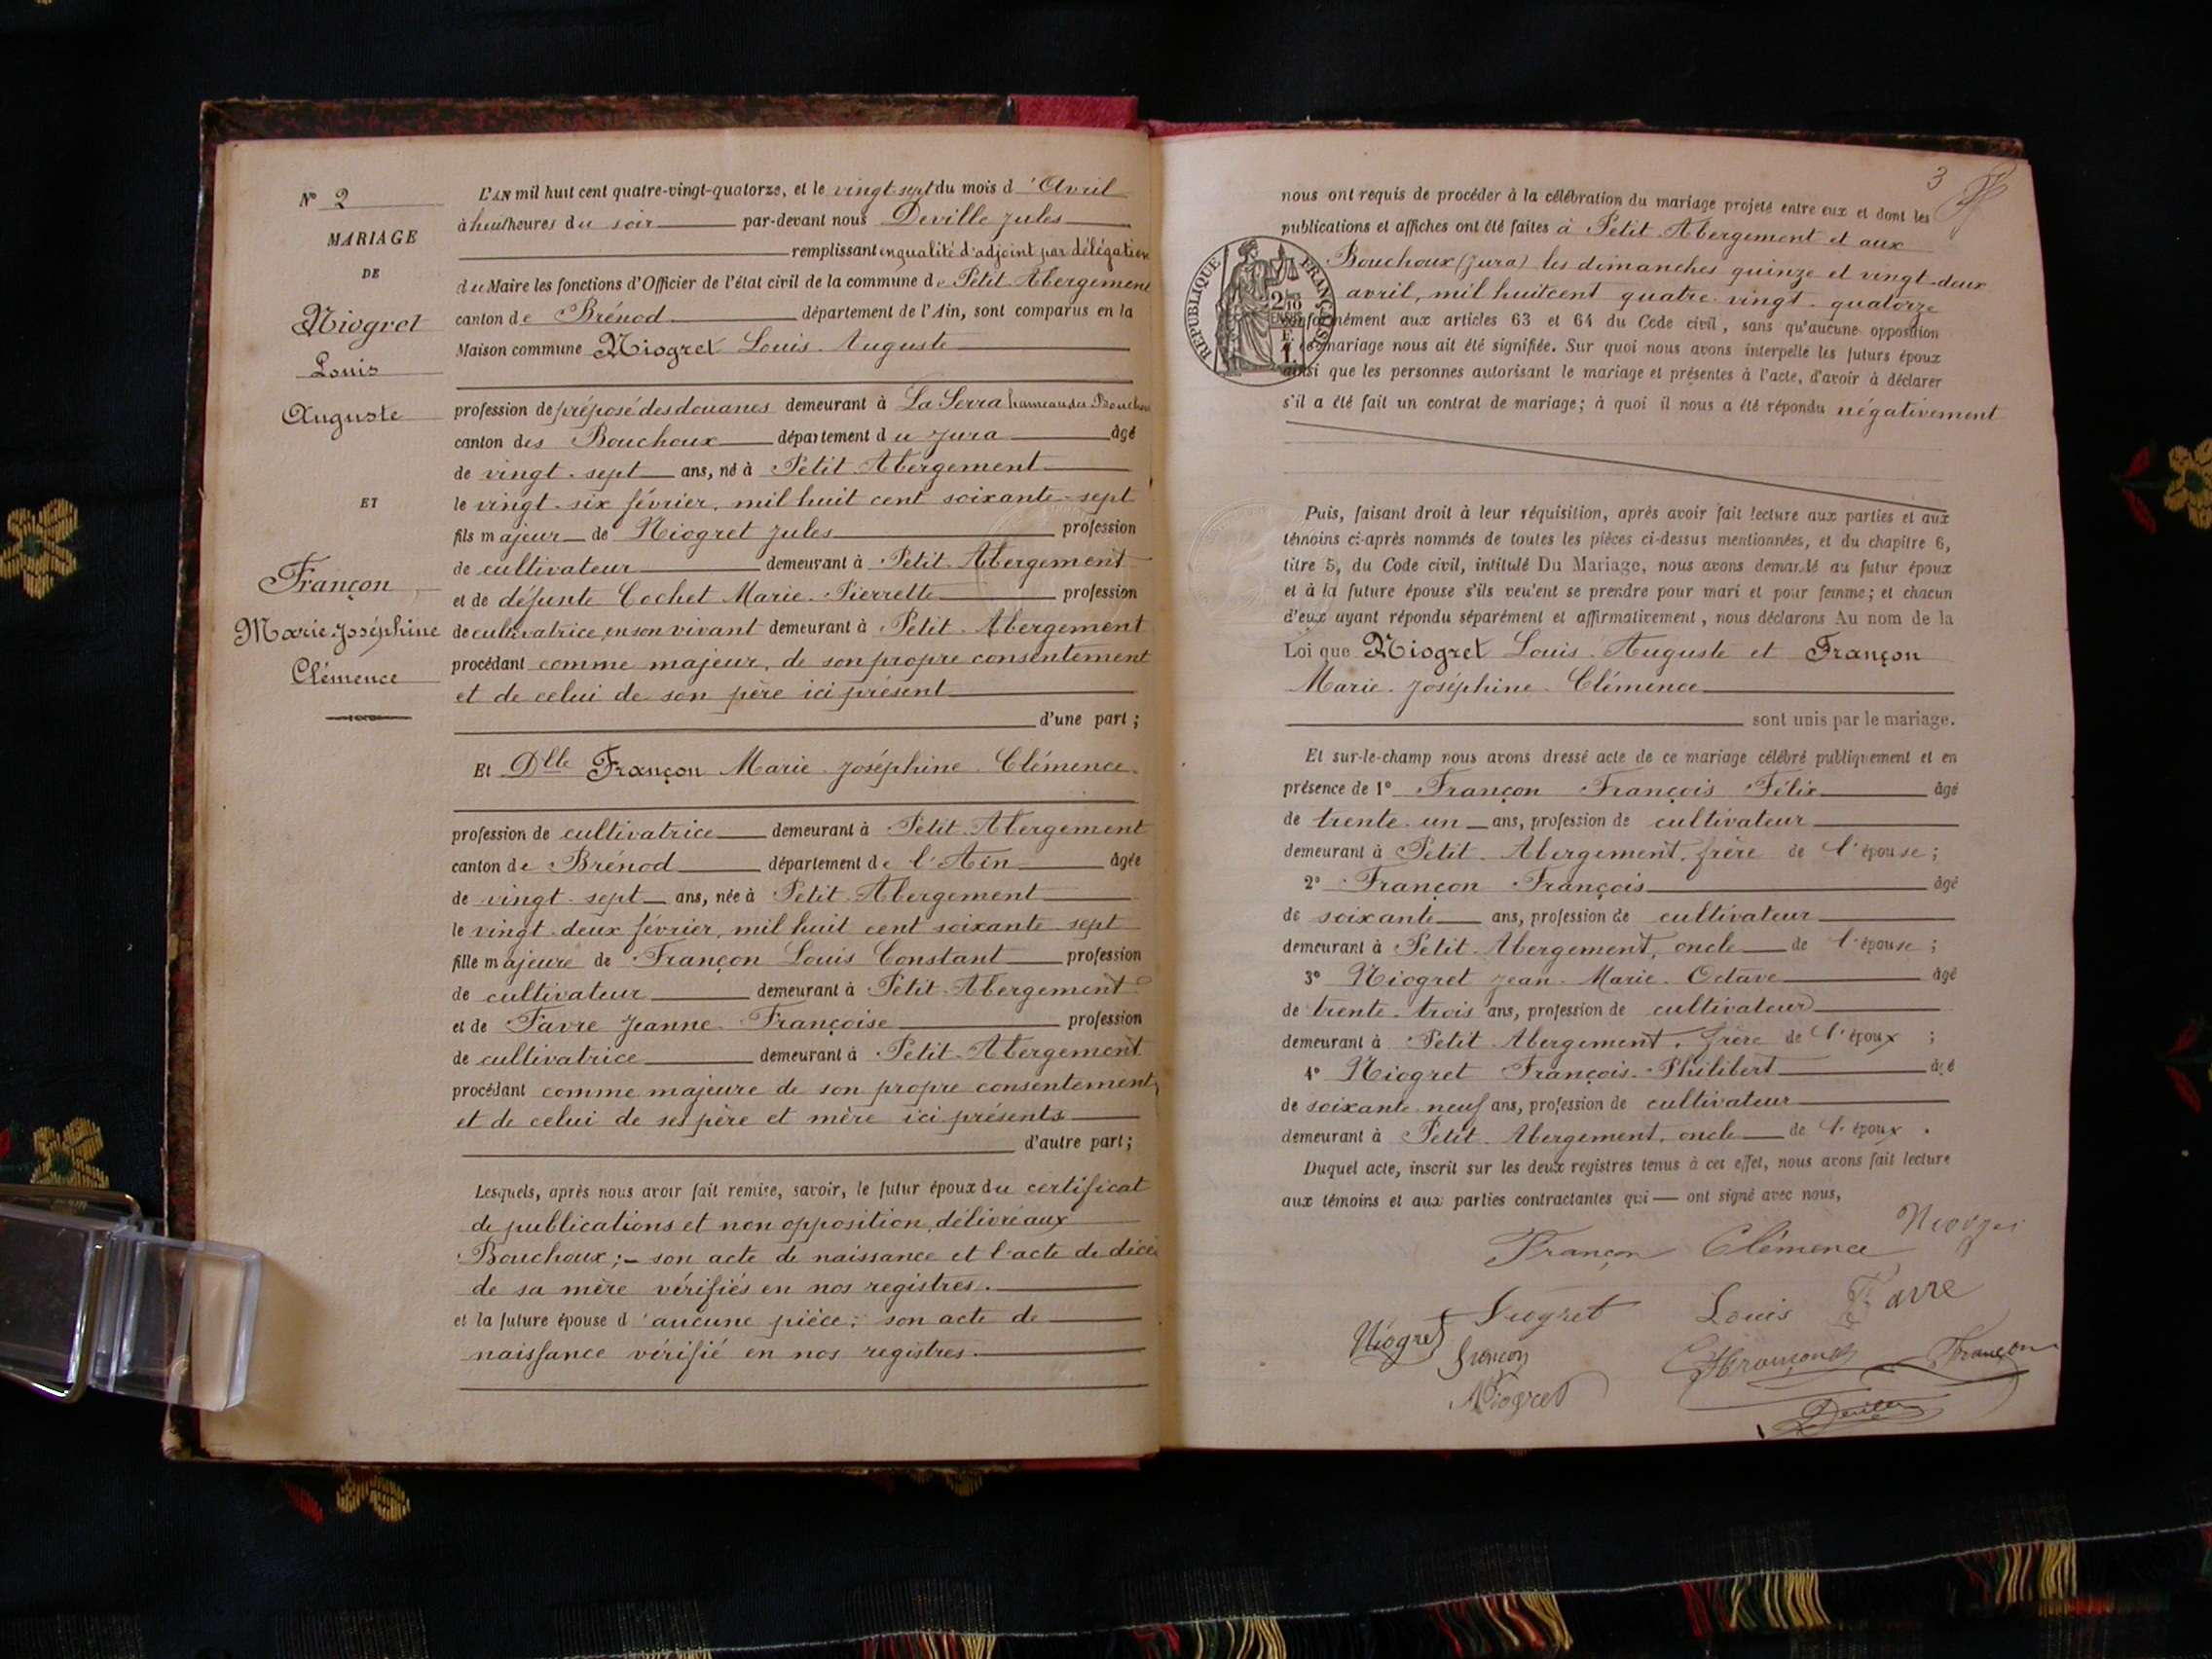 N° 2
MARIAGE
DE
Niogret
Louis
Auguste
ET
Françon
Marie Joséphine
Clémence
L'AN mil huit cent quatre-vingt-quatorze, et le vingt sept du mois d'Avril
à huit heures du soir par-devant nous Deville Jules
remplissant en qualité d'adjoint par délégation
du Maire les fonctions d'Officier de l'état civil de la commune de Petit Abergement
canton de Brénod département de l'Ain, sont comparus en la
Maison commune Niogret Louis Auguste
profession de préposé des douanes demeurant à La Serra hameau des Bouchoux
canton des Bouchoux département du Jura âgé
de vingt-sept ans, né à Petit Abergement
le vingt-six février, mil huit cent soixante-sept
fils majeur de Niogret Jules profession
de cultivateur demeurant à Petit Abergement
et de défunte Cochet Marie-Pierrette profession
de cultivatrice, en son vivant demeurant à Petit Abergement
procédant comme majeur, de son propre consentement
et de celui de son père ici présent
d'une part ;
Et Dlle Françon Marie Joséphine Clémence
profession de cultivatrice demeurant à Petit Abergement
canton de Brénod département de l'Ain âgée
de vingt-sept ans, née à Petit Abergement
le vingt-deux février, mil huit cent soixante-sept
fille majeure de Françon Louis Constant profession
de cultivateur demeurant à Petit Abergement
et de Favre Jeanne-Françoise profession
de cultivatrice demeurant à Petit-Abergement
procédant comme majeure de son propre consentement
et de celui de ses père et mère ici présents
d'autre part ;
Lesquels, après nous avoir fait remise, savoir, le futur époux du certificat
de publications et non opposition, délivré aux
Bouchoux ; – son acte de naissance et l'acte de décès
de sa mère vérifiés en nos registres.
et la future épouse d'aucune pièce ; son acte de
naissance vérifié en nos registres.
3
nous ont requis de procéder à la célébration du mariage projeté entre eux et dont les
publications et affiches ont été faites à Petit Abergement et aux
Bouchoux (Jura) les dimanches quinze et vingt-deux
avril, mil huit cent quatre-vingt-quatorze
RÉPUBLIQUE FRANÇAISE
conformément aux articles 63 et 64 du Code civil, sans qu'aucune opposition
mariage nous ait été signifiée. Sur quoi nous avons interpellé les futurs époux
ainsi que les personnes autorisant le mariage et présentes à l'acte, d'avoir à déclarer
s'il a été fait un contrat de mariage ; à quoi il nous a été répondu négativement
Puis, faisant droit à leur réquisition, après avoir fait lecture aux parties et aux
témoins ci-après nommés de toutes les pièces ci-dessus mentionnées, et du chapitre 6,
titre 5, du Code civil, intitulé Du Mariage, nous avons demandé au futur époux
et à la future épouse s'ils veulent se prendre pour mari et pour femme ; et chacun
d'eux ayant répondu séparément et affirmativement, nous déclarons Au nom de la
Loi que Niogret Louis Auguste et Françon
Marie-Joséphine-Clémence
sont unis par le mariage.
Et sur-le-champ nous avons dressé acte de ce mariage célébré publiquement et en
présence de 1° Françon François Félix âgé
de trente un ans, profession de cultivateur
demeurant à Petit Abergement, frère de l'épouse ;
2° Françon François âgé
de soixante ans, profession de cultivateur
demeurant à Petit Abergement, oncle de l'épouse ;
3° Niogret Jean-Marie-Octave âgé
de trente-trois ans, profession de cultivateur
demeurant à Petit Abergement, frère de l'époux ;
4° Niogret François-Philibert âgé
de soixante neuf ans, profession de cultivateur
demeurant à Petit Abergement, oncle de l'époux.
Duquel acte, inscrit sur les deux registres tenus à cet effet, nous avons fait lecture
aux témoins et aux parties contractantes qui ont signé avec nous,
Françon Clémence
Niogret Louis Favre
Niogret Françon Françon
Niogret
Deville